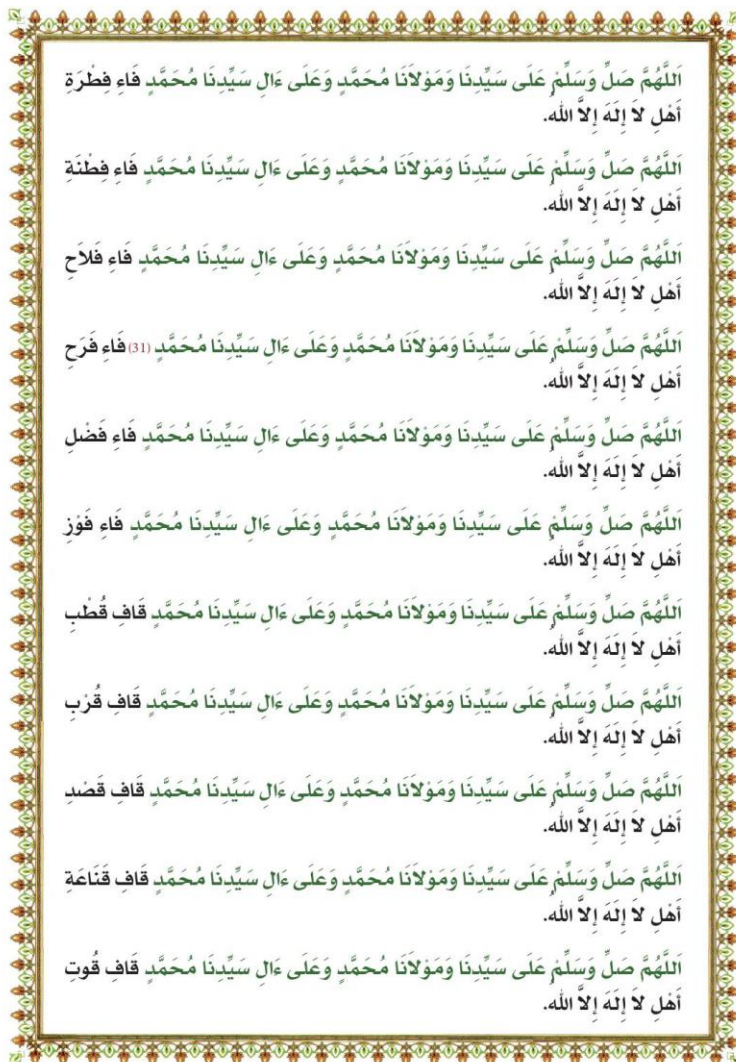 اَللَّهُمَّ صَلِّ وَسَلِّمْ عَلَى سَيِّدِنَا وَمَوْلاَنَا مُحَمَّدٍ وَعَلَى ءَالِ سَيِّدِنَا مُحَمَّدٍ فَاءِ فِطْرَةِ
أَهْلِ لاَ إِلَهَ إِلاَّ الله.
اَللَّهُمَّ صَلِّ وَسَلِّمْ عَلَى سَيِّدِنَا وَمَوْلاَنَا مُحَمَّدٍ وَعَلَى ءَالِ سَيِّدِنَا مُحَمَّدٍ فَاءِ فِطْنَةِ
أَهْلِ لاَ إِلَهَ إِلاَّ الله.
اَللَّهُمَّ صَلِّ وَسَلِّمْ عَلَى سَيِّدِنَا وَمَوْلاَنَا مُحَمَّدٍ وَعَلَى ءَالِ سَيِّدِنَا مُحَمَّدٍ فَاءِ فَلاَحِ
أَهْلِ لاَ إِلَهَ إِلاَّ الله.
اَللَّهُمَّ صَلِّ وَسَلِّمْ عَلَى سَيِّدِنَا وَمَوْلاَنَا مُحَمَّدٍ وَعَلَى ءَالِ سَيِّدِنَا مُحَمَّدٍ (31) فَاءِ فَرَحِ
أَهْلِ لاَ إِلَهَ إِلاَّ الله.
اَللَّهُمَّ صَلِّ وَسَلِّمْ عَلَى سَيِّدِنَا وَمَوْلاَنَا مُحَمَّدٍ وَعَلَى ءَالِ سَيِّدِنَا مُحَمَّدٍ فَاءِ فَضْلِ
أَهْلِ لاَ إِلَهَ إِلاَّ الله.
اَللَّهُمَّ صَلِّ وَسَلِّمْ عَلَى سَيِّدِنَا وَمَوْلاَنَا مُحَمَّدٍ وَعَلَى ءَالِ سَيِّدِنَا مُحَمَّدٍ فَاءِ فَوْزِ
أَهْلِ لاَ إِلَهَ إِلاَّ الله.
اَللَّهُمَّ صَلِّ وَسَلِّمْ عَلَى سَيِّدِنَا وَمَوْلاَنَا مُحَمَّدٍ وَعَلَى ءَالِ سَيِّدِنَا مُحَمَّدٍ قَافِ قُطْبِ
أَهْلِ لاَ إِلَهَ إِلاَّ الله.
اَللَّهُمَّ صَلِّ وَسَلِّمْ عَلَى سَيِّدِنَا وَمَوْلاَنَا مُحَمَّدٍ وَعَلَى ءَالِ سَيِّدِنَا مُحَمَّدٍ قَافِ قُرْبِ
أَهْلِ لاَ إِلَهَ إِلاَّ الله.
اَللَّهُمَّ صَلِّ وَسَلِّمْ عَلَى سَيِّدِنَا وَمَوْلاَنَا مُحَمَّدٍ وَعَلَى ءَالِ سَيِّدِنَا مُحَمَّدٍ قَافِ قَصْدِ
أَهْلِ لاَ إِلَهَ إِلاَّ الله.
اَللَّهُمَّ صَلِّ وَسَلِّمْ عَلَى سَيِّدِنَا وَمَوْلاَنَا مُحَمَّدٍ وَعَلَى ءَالِ سَيِّدِنَا مُحَمَّدٍ قَافِ قَنَاعَةِ
أَهْلِ لاَ إِلَهَ إِلاَّ الله.
اَللَّهُمَّ صَلِّ وَسَلِّمْ عَلَى سَيِّدِنَا وَمَوْلاَنَا مُحَمَّدٍ وَعَلَى ءَالِ سَيِّدِنَا مُحَمَّدٍ قَافِ قُوتِ
أَهْلِ لاَ إِلَهَ إِلاَّ الله.